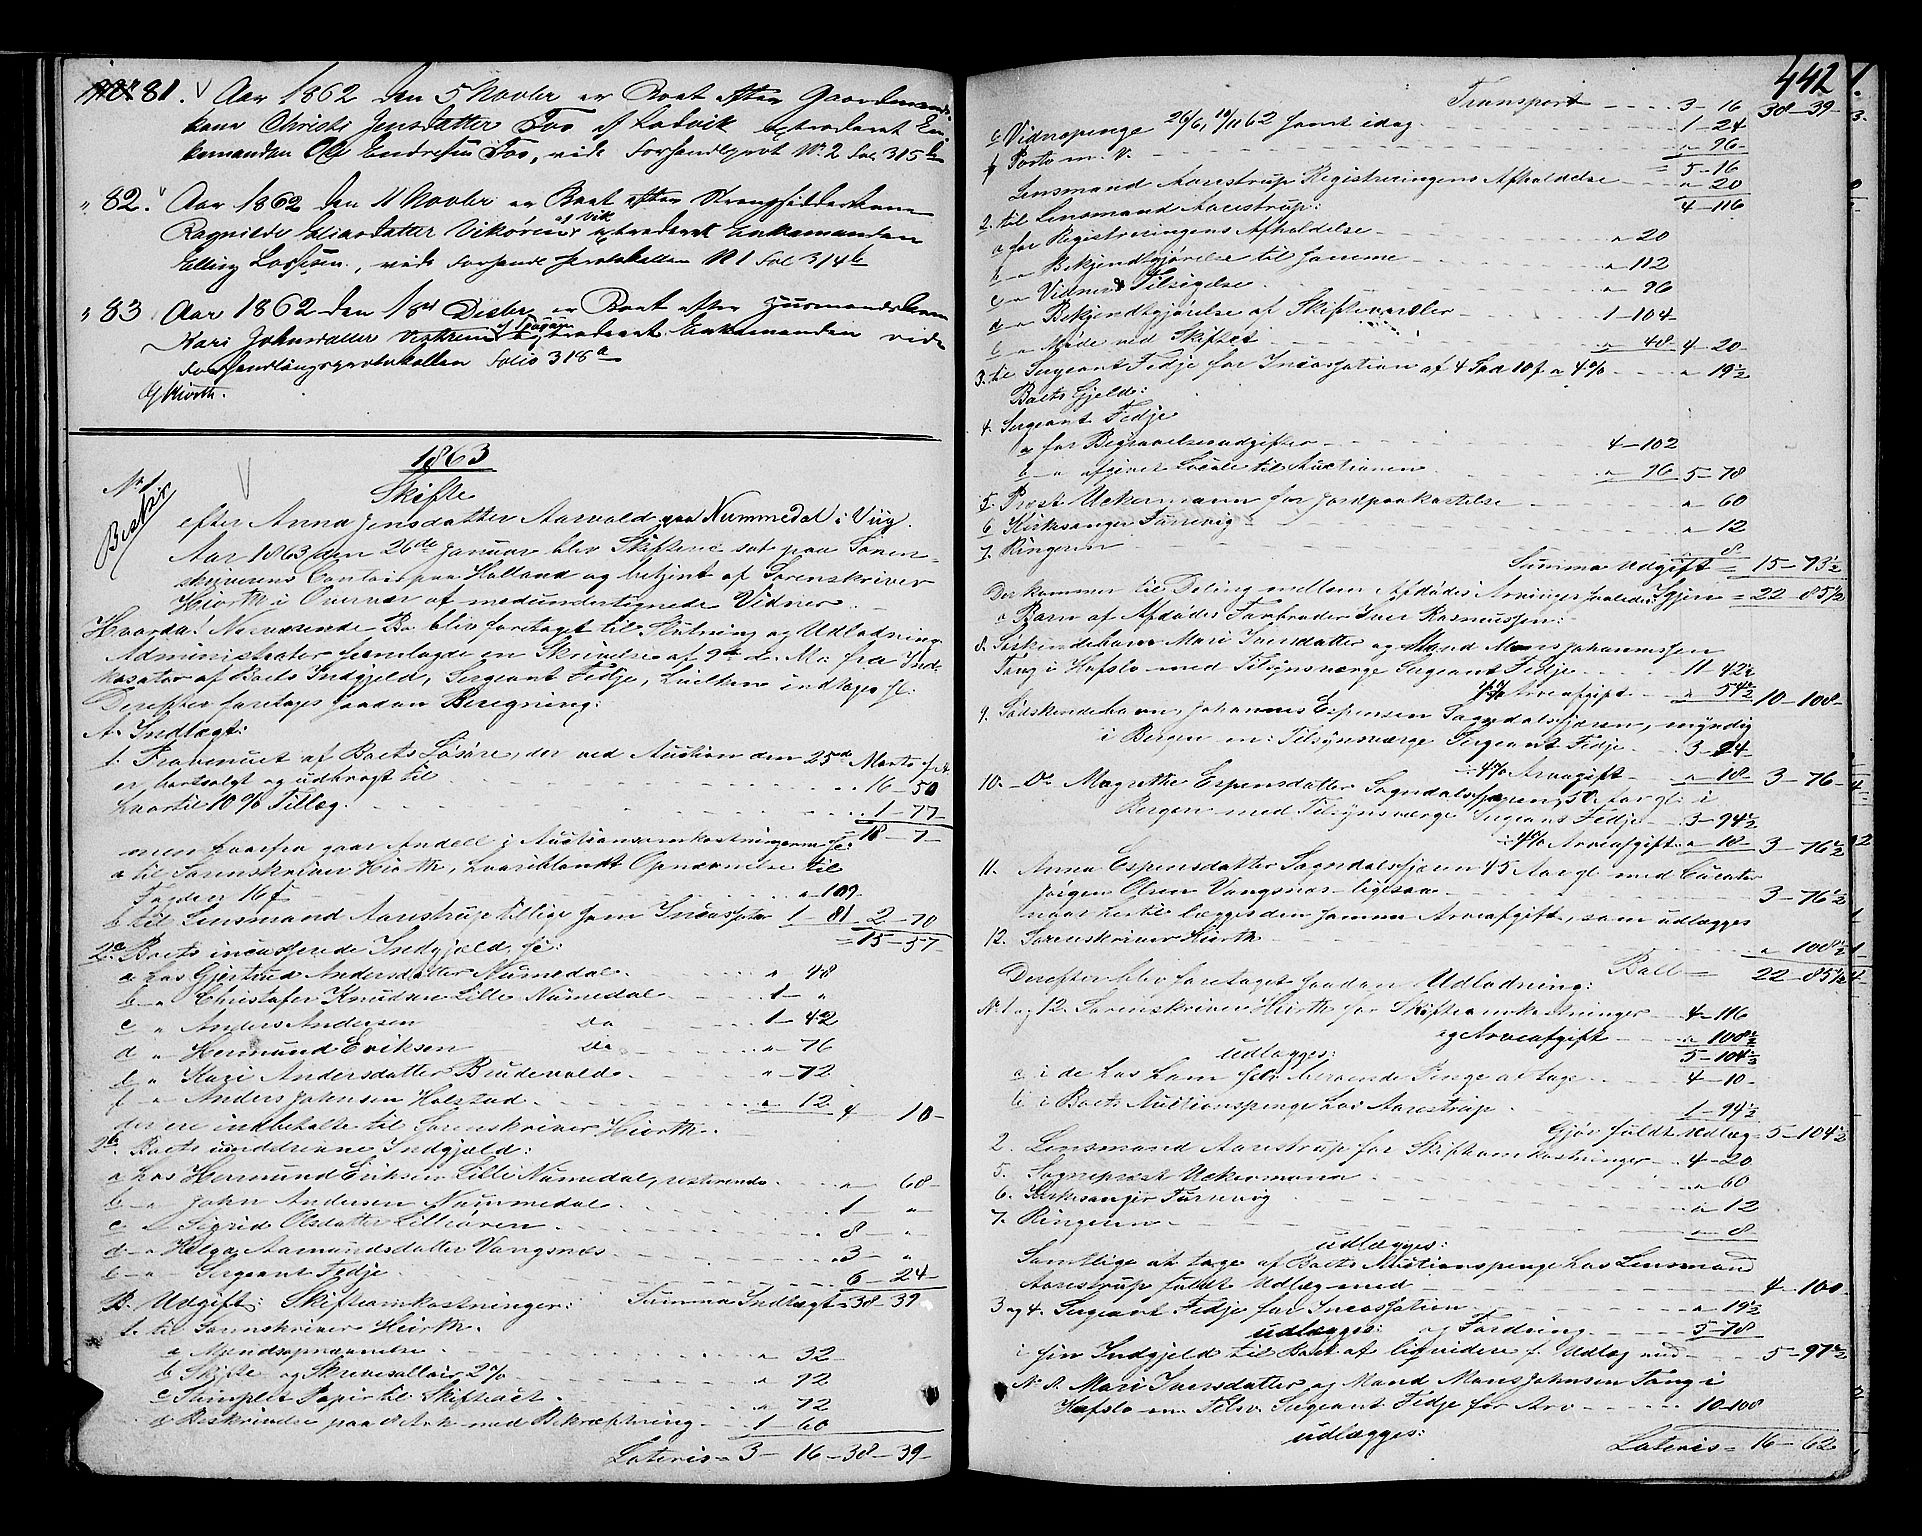 81. Aar 1862 den 5 Novbr er Boet efter Gaardmands-
kone Christi Jensdatter Too af Ladvik extraderet En-
kemanden Ole Endresen Too, vide Forhandlprot No. 2 Fol 315b
" 82. Aar 1862 den 11 Novbr er Boet efter Strandsidderkone
Ragnilde Eliasdatter Vikören af Vik extraderet Enkemanden
Elling Larsen, vide Forhandl protokollen N 1 Fol 314b
" 83 Aar 1862 den 1ste Decbr er Boet efter Huusmandskone
Kari Johnsdatter Vestrem af Sogn extraderet Enkemanden vide
Forhandlingsprotokollen Folio 318a
G Hiorth.
1863
No 1
Beskr
Skifte
efter Anna Jensdatter Aarvold paa Nummedal i Viig.
Aar 1863 den 26de Januar blev Skifteret sat paa Soren-
skriverens Contoir paa Holland og betjent af Sorenskriver
Hiorth i Overvær af medundertegnede Vidner.
Hvorda! Nærværende Bo blev foretaget til Slutning og Udlodning.
Administrator fremlagde en Skrivelse af 9de d. M. fra Ind-
kasator af Boets Indgjeld, Sergeant Fedje, hvilken indtages fl:
Derefter foretoges saadan Beregning:
A. Indtægt:
1. Provenuet af Boets Løsøre, der ved Auction den 25de Marts f. A.
er bortsolgt og udbragt til 16 - 50
hvortil 10 % Tillæg 1 - 77
= 18 - 7 -
men hvorfra gaar Andell i Auctionsomkostningerne fl:
a til Sorenskriver Hiorth, hvoriblandt Opnævnelse til
Taxdere 16 f " - 109
b til Lensmand Aarestrup tillige som Incassator 1 - 81 2 - 70
= 15 - 57
2a Boets incasserede Indgjeld, fl:
a hos Gjertrud Andersdatter Numedal " 48
b - " Christofer Knudsen Lille Numedal 1 - "
c " Anders Andersen Do 1 - 42
d " Hermund Eriksen Do " - 76
e " Kari Andersdatter Brudevold " - 72
f " Anders Johnsen Holstad " 12 4 - 10 -
der ere indbetalte til Sorenskriver Hiorth.
2b. Boets uinddrevne Indgjeld:
a hos Hermund Eriksen Lille Numedal, resterende " 68 -
b - " John Andersen Nummedal 1 - "
c - " Sigrid Olsdatter Lilleøren 8 - "
d - " Helga Aamundsdatter Vangsnæs 3 - "
e - " Sergeant Fedje 6 - 24 -
Summa Indtægt = 38 - 39
B. Udgift: Skifteomkostninger:
1. til Sorenskriver Hiorth.
a Mandsopnævnelse " 32 -
b Skifte og Skriversallair 2 % " 92
c Stemplet Papir til Skifteact " 72
d Beskrivelse paa dito Ark med Bekræftning 1 - 60
Lateris = 3 - 16 - 38 - 39 -
442
Transport 3 - 16 38 - 39 -
e Vidnepenge 26/6, 10/11 62 samt idag 1 - 24
f Porto m. V. " - 96 -
= 5 - 16
Lensmand Aarestrup Registreringens Afholdelse " 20
4 - 116
2. til Lensmand Aarestrup:
a for Registreringens Afholdelse " 20
b - " Bekjendtgjørelse til samme " 112
c - " Vidners Tilsigelse " 96
d - " Bekjendtgjørelse af Skiftevarsler 1 - 104
e - " Møde ved Skiftet " 48 4 - 20
3. til Sergeant Fedje for Incassation af 4 Spd 10 f. a 4 % " 19½
Boets Gjeld:
4. Sergeant Fedje
a for Begravelsesudgifter 4 - 102
b - " afgivet Locale til Auctionen " 96 5 - 78
5. Provst Uckermann for Jordpaakastelse " 60
6 Kirksanger Turvevig " 12
7. Ringeren " 8
Summa Udgift = 15 - 73½
Der kommer til Deling mellem Afdødes Arvinger saaledes igjen = 22 - 85½
" Børn af Afdødes Farbroder Iver Rasmussen:
8. Sødskendebarn Mari Iversdatter og Mand Mons Johannessen
Tang i Hafslo med Tilsynsværge Sergeant Fedje 11 42½
4% Arveafgift " 54½ 10 - 108 -
9. Sødskendebarn, Johannes Espensen Sogndalsfjæren, myndig
i Bergen m: Tilsynsværge Sergeant Fedje 3 - 94
÷ 4% Arveafgift " 18 - 3 - 76 -
10. - Do Magrethe Espensdatter Sogndalsfjæren, 50 Aar gl: i
Bergen med Tilsynsværge Sergeant Fedje 3 - 94½
÷ 4% Arveafgift " 18 - 3 - 76½
11. Anna Espensdatter Sogndalsfjæren 45 Aar gl med Curator
Jørgen Olsen Vangsnæs ligesaa 3 - 76½
naar hertil lægges den samme Arveafgift, som udlægges
12. Sorenskriver Hiorth " 108½
Ball = 22 - 85½
Derefter blev foretaget saadan Udlodning:
N. 1 og 12. Sorenskriver Hiorth for Skifteomkostninger 4 - 116
og Arveafgift " 108½
5 - 104½
udlægges:
a i de hos ham selv beroende Penge at tage 4 - 10 -
b i Boets Auctionspenge hos Aarestrup 1 - 94½
Gjør fuldt Udlæg = 5 - 104½
2. Lensmand Aarestrup for Skifteomkostninger 4 - 20
5. Sogneprest Uckermann " 60
6. Kirksanger Turvevig " 12
7. Ringeren " 8
udlægges:
Samtlige at tage af Boets Auctionspenge hos Lensmand
Aarestrup fuldt Udlæg med 4 - 100
3 og 4. Sergeant Fedje for Incassation " 19½
og Fordring 5 - 78
udlægges:
i sin Indgjeld til Boet at liqvidere f. Udlæg med 5 - 97½
N. 8. Mari Iversdatter og Mand Mons Johnsen Tang i
Hafslo m. Tilsv. Sergeant Fedje for Arv 10 - 108
udlægges:
Lateris = 16 - 62